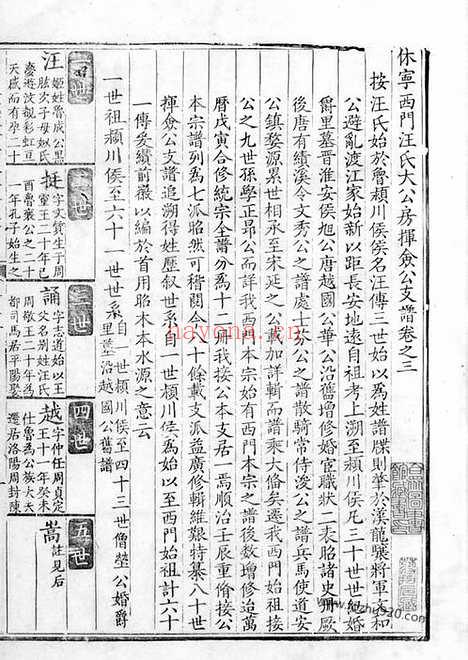 休寧西門汪氏大公房揮僉公支譜卷之三
按汪氏始於魯潁川侯侯名汪傳三世始以為姓譜牒則華於漢龍驤將軍文和
公避亂渡江家始新以距長安地遠自祖考上溯至潁川侯凡三十世世勉婚
爵里墓晋淮安侯旭公唐越國公華公沿舊增修婚宦職狀二表昭諸史冊厥
後唐有績溪令文秀公之譜處士芬公之譜散騎常侍浚公之譜兵馬使道安
公鎮婺源累世相承至宋延之公始加詳輯而譜乘大脩矣遷我西門始祖接
公之九世孫學正昴公而詳我西門本宗始有西門本宗之譜後數增修追萬
曆戊寅合修統宗全譜分為十二冊我接公本支居一焉順治壬辰重脩接公
本宗譜列為七派昭然可稽閱今七十餘載支派益廣修輯維艱特纂八十世
揮僉公支譜追溯得姓歷叙世系自一世潁川侯為始以至西門始祖計六十
一傳爰續前徽以編於首用昭木本水源之意云
一世祖潁川侯至六十一世世系自一世潁川侯至四十三世僧瑩公婚爵
里墓沿越國公舊譜
一世
汪
姬姓魯成公黑
肱次子母姒氏
慶遊波觀彩虹亘
天感而有孕二十
二世
挺
字文質生于周
靈王二十年已
酉魯襄公之二十
一年孔子始生之
三世
誦
字志道始以王
父名別姓汪氏
周敬王二十年為
都司馬居平陽娶
四世
越
字仲任周貞定
王十一年癸未
仕魯為公族大夫
遷居洛陽周封陳
五世
嵩
註見后
hayona.cn